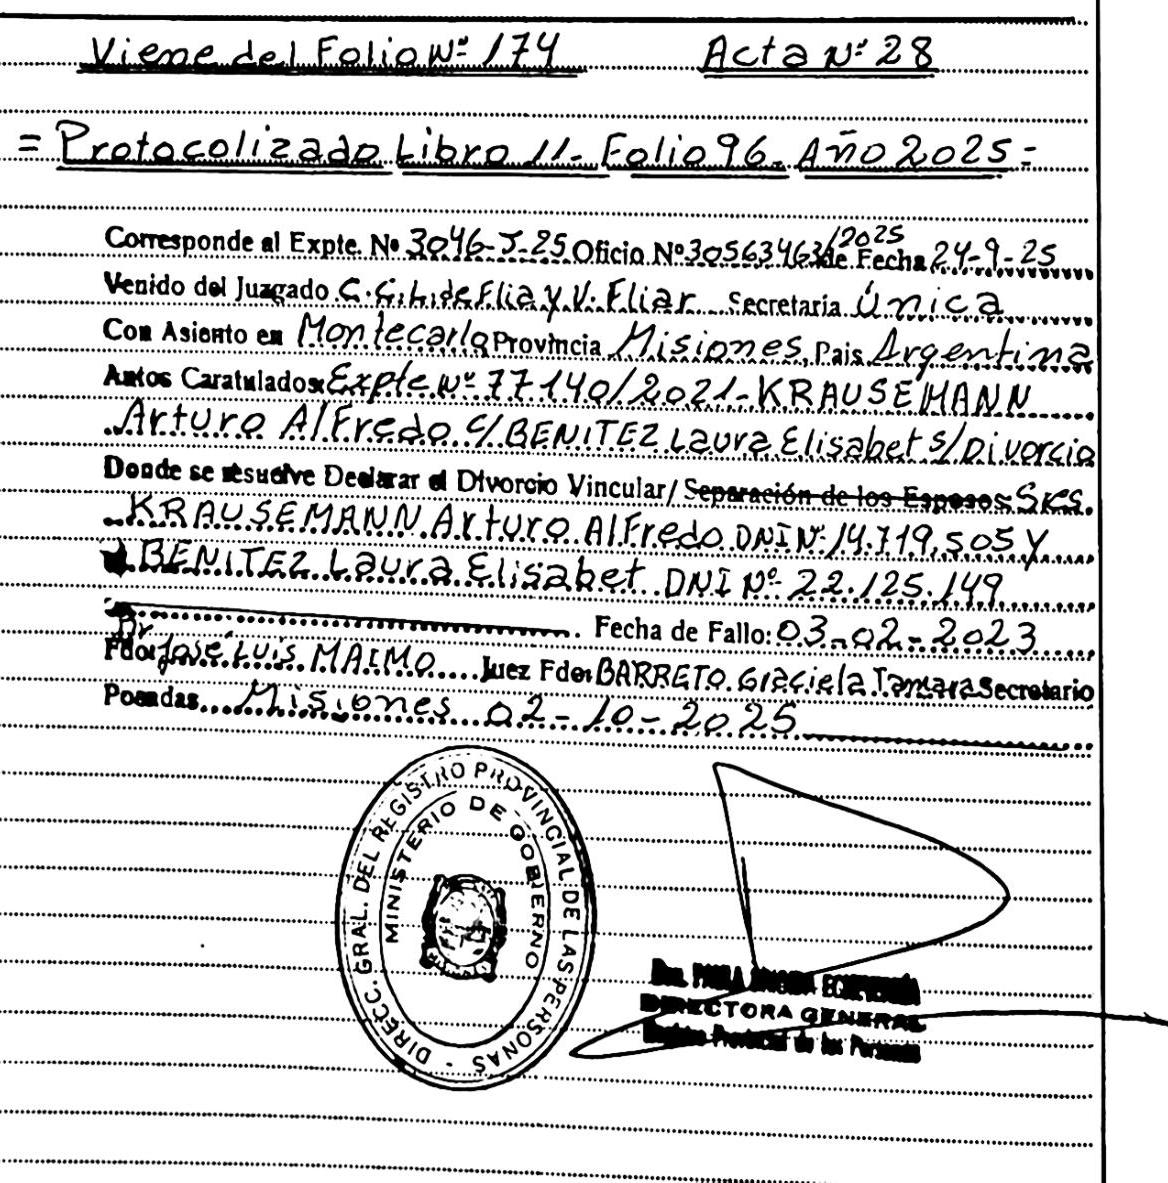 Viene del Folio Nº 174 Acta Nº 28
= Protocolizado Libro 11- Folio 96- Año 2025 =
Corresponde al Expte. Nº 3046-J-25 Oficio Nº 30563463/2025 de Fecha 24-9-25
Venido del Juzgado C.C.L. de Flia y V. Fliar Secretaria Única
Con Asiento en Montecarlo Provincia Misiones, Pais Argentina
Autos Caratulados: Expte Nº 77140/2021- KRAUSEMANN
Arturo Alfredo c/ BENITEZ Laura Elisabet s/ Divorcio
Donde se resuelve Declarar el Divorcio Vincular/ Separación de los Esposos Sres.
KRAUSEMANN Arturo Alfredo DNI Nº 14.719.505 Y
BENITEZ Laura Elisabet DNI Nº 22.125.149
Fecha de Fallo: 03-02-2023
Fdo: Dr José Luis MAIMO Juez Fdo: BARRETO Graciela Tamara Secretario
Posadas, Misiones 02-10-2025
DIRECC. GRAL. DEL REGISTRO PROVINCIAL DE LAS PERSONAS -
MINISTERIO DE GOBIERNO
Dra. PAULA ECHEVERRÍA
DIRECTORA GENERAL
Registro Provincial de las Personas